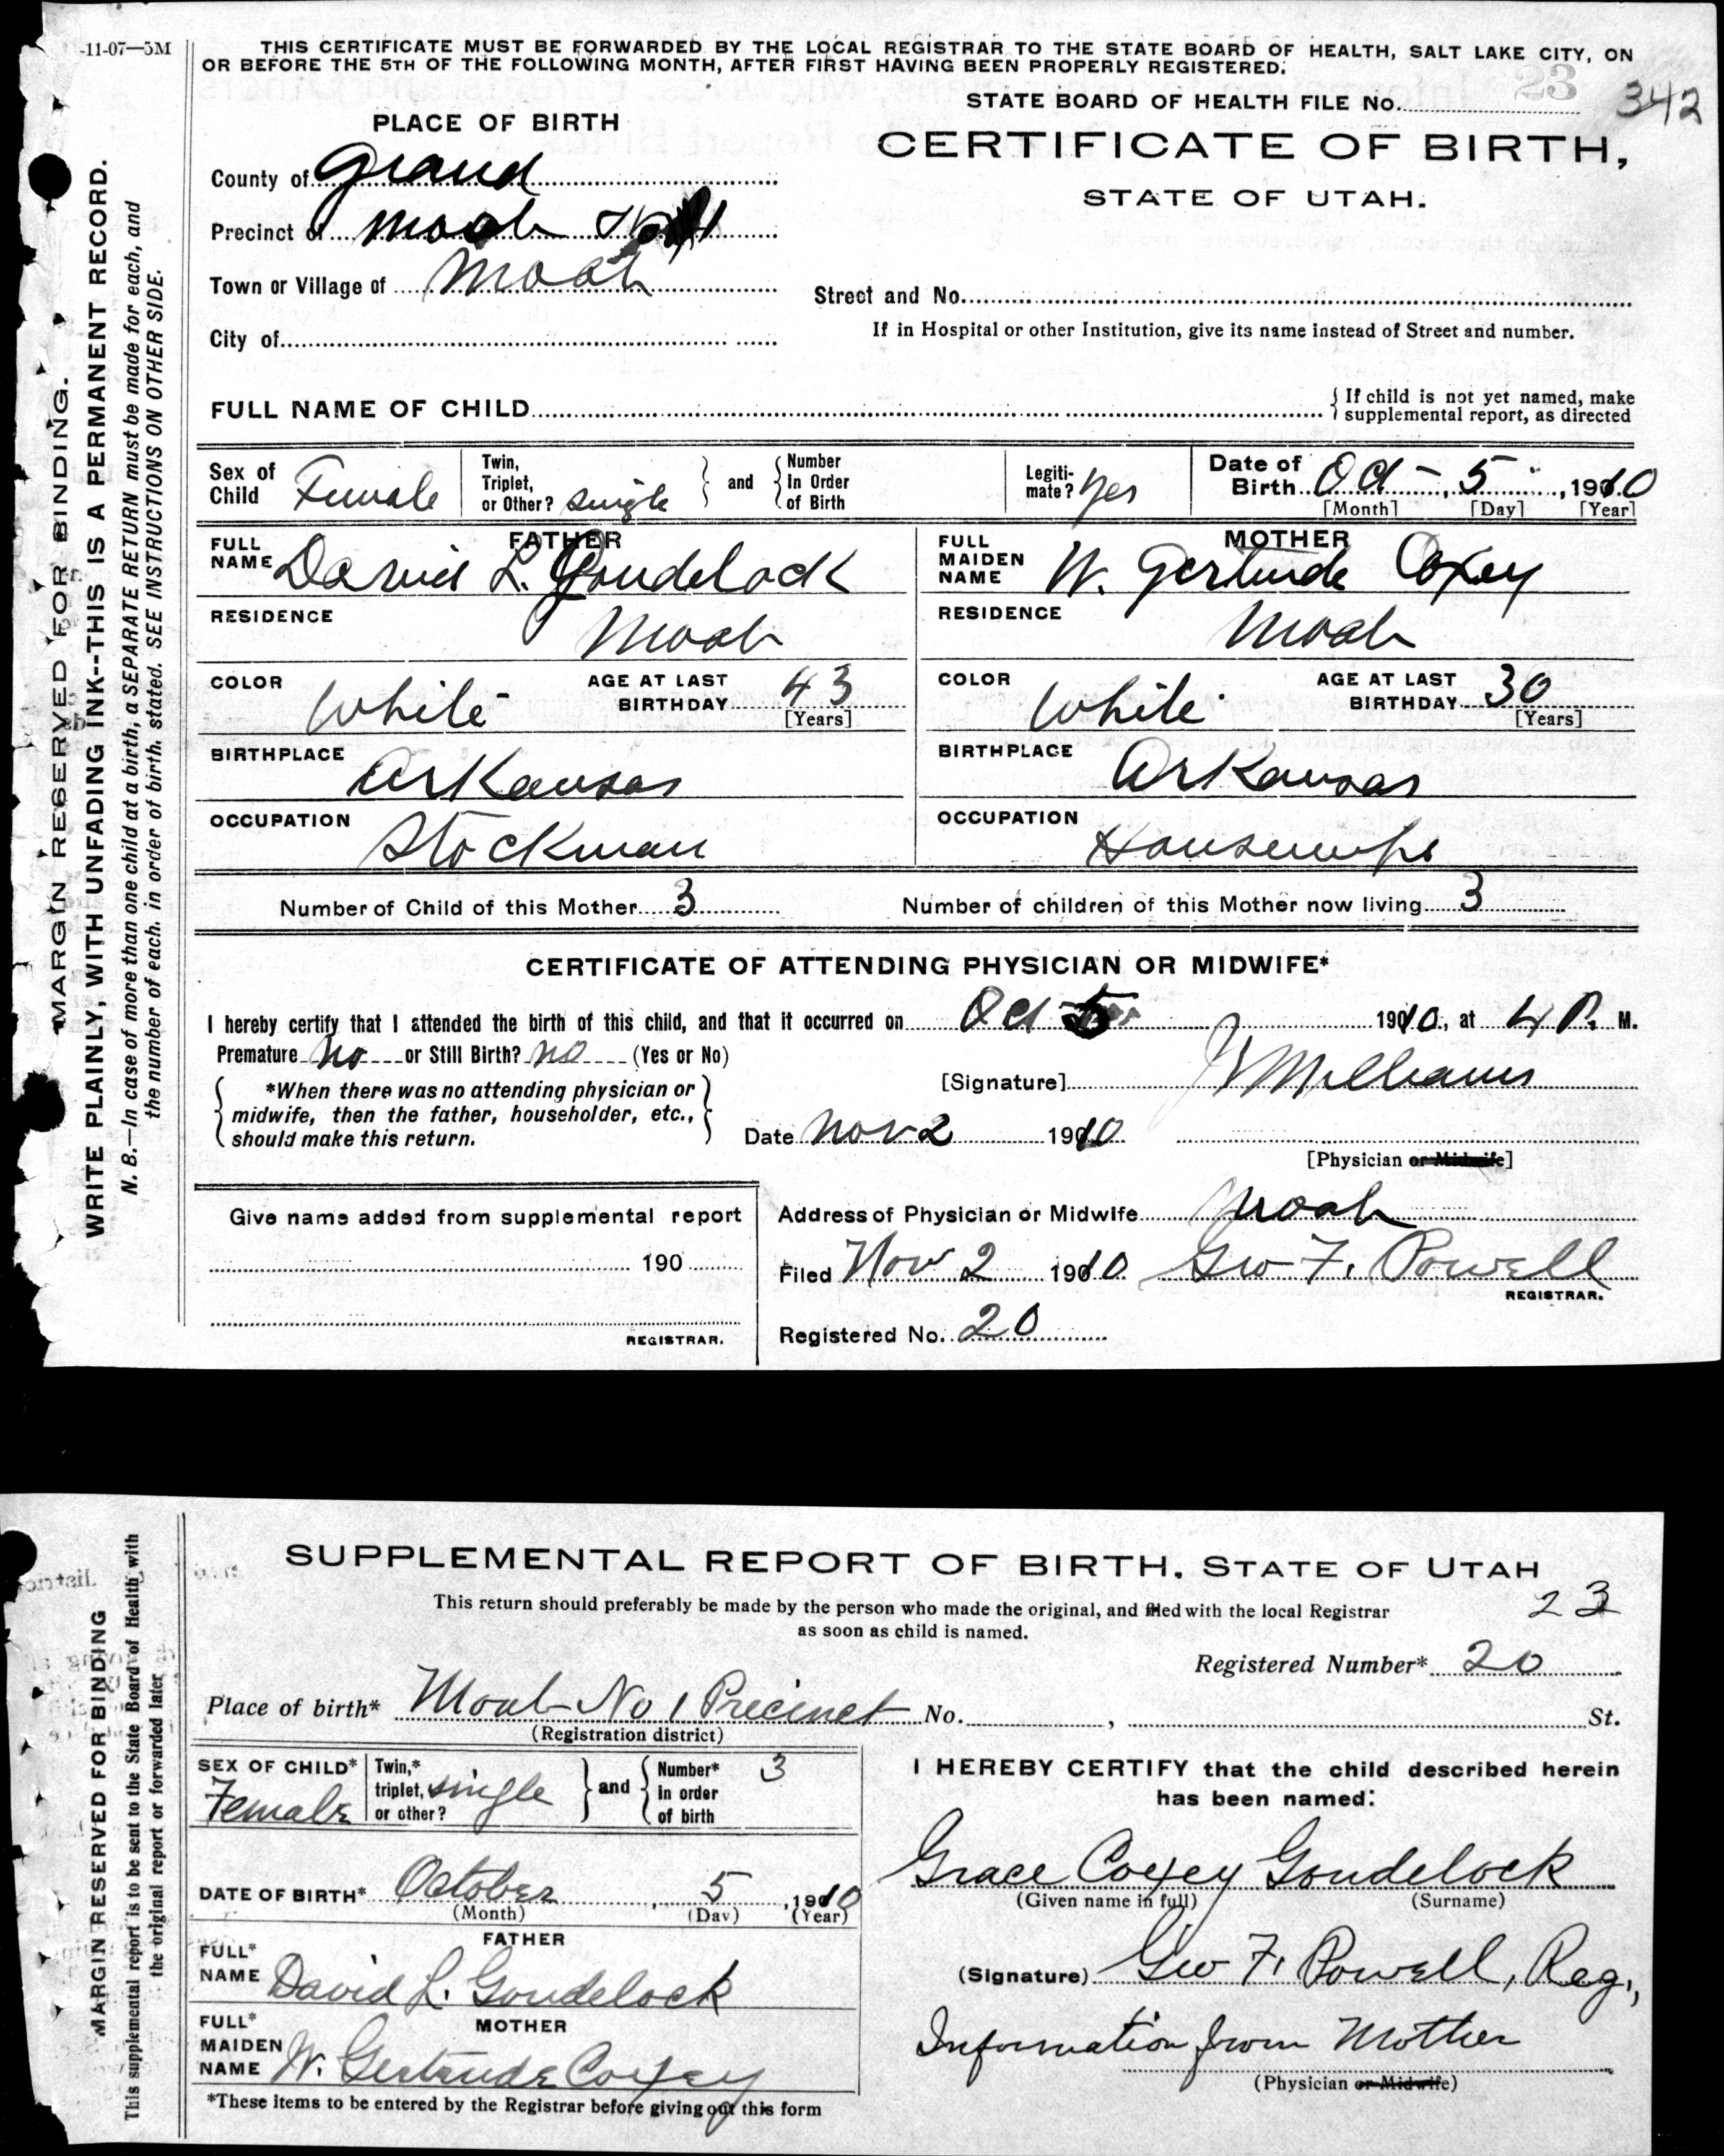 -11-07—5M
THIS CERTIFICATE MUST BE FORWARDED BY THE LOCAL REGISTRAR TO THE STATE BOARD OF HEALTH, SALT LAKE CITY, ON
OR BEFORE THE 5TH OF THE FOLLOWING MONTH, AFTER FIRST HAVING BEEN PROPERLY REGISTERED.
STATE BOARD OF HEALTH FILE No. 23 342
PLACE OF BIRTH
CERTIFICATE OF BIRTH,
STATE OF UTAH.
County of Grand
Precinct of Moab
Town or Village of Moab
Street and No.
City of
If in Hospital or other Institution, give its name instead of Street and number.
FULL NAME OF CHILD
{ If child is not yet named, make
supplemental report, as directed
Sex of Child Female
Twin, Triplet, or Other? single } and { Number In Order of Birth
Legiti-mate? Yes
Date of Birth Oct - 5 , 1910
[Month] [Day] [Year]
FATHER
FULL NAME David L. Goudelock
RESIDENCE Moab
COLOR White AGE AT LAST BIRTHDAY 43
[Years]
BIRTHPLACE Arkansas
OCCUPATION Stockman
MOTHER
FULL MAIDEN NAME W. Gertrude Coxey
RESIDENCE Moab
COLOR White AGE AT LAST BIRTHDAY 30
[Years]
BIRTHPLACE Arkansas
OCCUPATION Housewife
Number of Child of this Mother 3 Number of children of this Mother now living 3
CERTIFICATE OF ATTENDING PHYSICIAN OR MIDWIFE*
I hereby certify that I attended the birth of this child, and that it occurred on Oct 5 1910, at 4 P. M.
Premature No or Still Birth? no (Yes or No)
{ *When there was no attending physician or
midwife, then the father, householder, etc.,
should make this return. }
[Signature] Williams
Date Nov 2 1910
[Physician or Midwife]
Address of Physician or Midwife Moab
Filed Nov 2 1910 Geo F. Powell
REGISTRAR.
Registered No. 20
Give name added from supplemental report
190
REGISTRAR.
MARGIN RESERVED FOR BINDING.
WRITE PLAINLY, WITH UNFADING INK--THIS IS A PERMANENT RECORD.
N. B.—In case of more than one child at a birth, a SEPARATE RETURN must be made for each, and
the number of each, in order of birth, stated. SEE INSTRUCTIONS ON OTHER SIDE.
SUPPLEMENTAL REPORT OF BIRTH, STATE OF UTAH
This return should preferably be made by the person who made the original, and filed with the local Registrar
as soon as child is named.
23
Registered Number* 20
Place of birth* Moab No 1 Precinct No. , St.
(Registration district)
SEX OF CHILD* Female
Twin,* triplet, or other? single } and { Number* in order of birth 3
DATE OF BIRTH* October , 5 , 1910
(Month) (Day) (Year)
FATHER
FULL* NAME David L. Goudelock
MOTHER
FULL* MAIDEN NAME W. Gertrude Coxey
*These items to be entered by the Registrar before giving out this form
I HEREBY CERTIFY that the child described herein
has been named:
Grace Coxey Goudelock
(Given name in full) (Surname)
(Signature) Geo F. Powell, Reg.,
Information from Mother
(Physician or Midwife)
MARGIN RESERVED FOR BINDING
This supplemental report is to be sent to the State Board of Health with
the original report or forwarded later